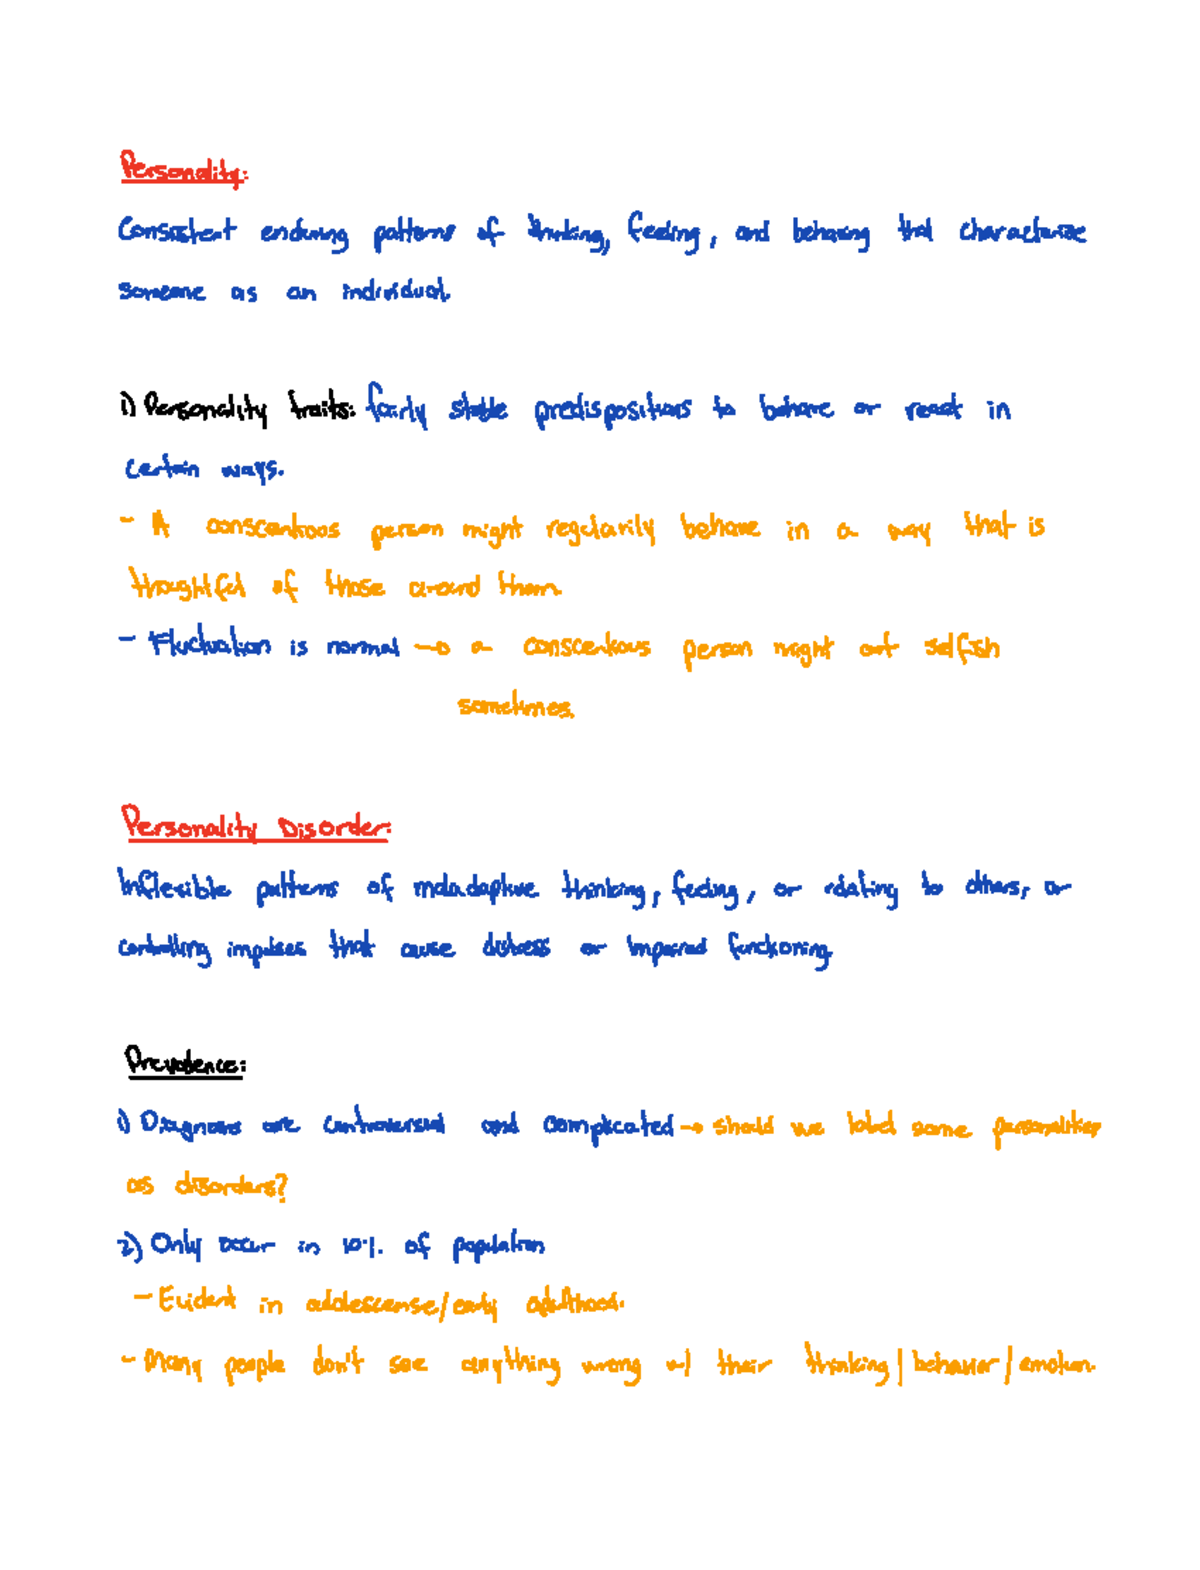 Personality:
Consistent enduring patterns of thinking, feeling, and behaving that characterize
someone as an individual.
1) Personality traits: fairly stable predispositions to behave or react in
certain ways.
- A conscentious person might regularily behave in a way that is
thoughtful of those around them.
- Fluctuation is normal → a conscentious person might act selfish
sometimes.
Personality Disorder:
Inflexible patterns of maladaptive thinking, feeling, or relating to others, or
controlling impulses that cause distress or impaired functioning.
Prevalence:
1) Diagnosis are controversial and complicated → should we label some personalities
as disorders?
2) Only occur in 10%. of population
- Evident in adolescense/early adulthood.
- Many people don't see anything wrong w/ their thinking/behavior/emotion.